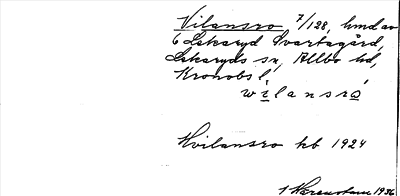 Vilansro 7/128, hmd av
6 Lekaryd Svartegård,
Lekaryds sn, Allbo hd,
Kronobs l.
wilansrö
Hvilansro kb 1924
1936